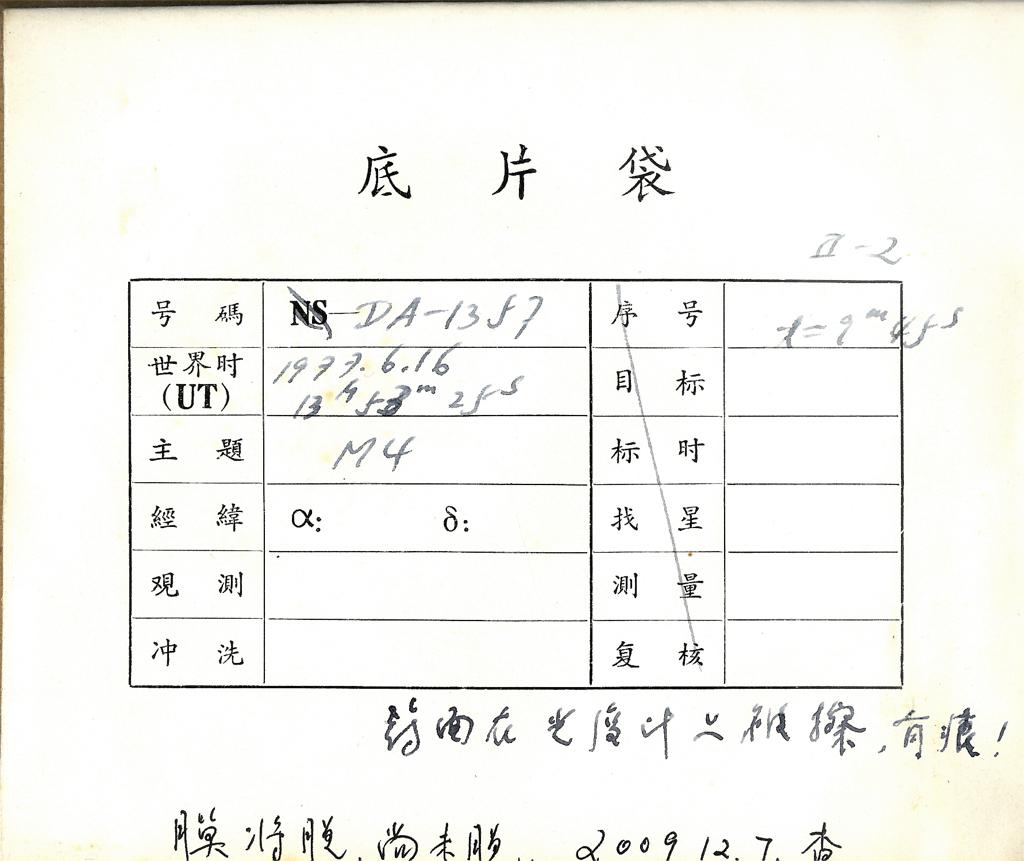 底片袋
II-2
号碼 NS-DA-1357 序号 t=9m45s
世界时(UT) 1977.6.16 13h53m25s 目标
主題 M4 标时
經緯 α: δ: 找星
观測 測量
冲洗 复核
药面在光度计上被擦,有痕!
膜将脱,尚未脱. 2009.12.7.查